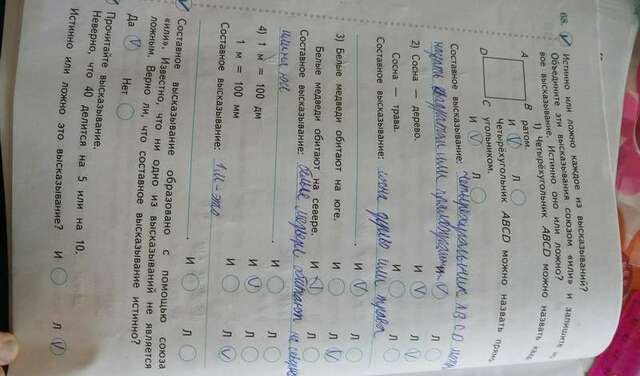 68. Истинно или ложно каждое из высказываний?
Объедините эти высказывания союзом «или» и запишите
вое высказывание. Истинно оно или ложно?
1) Четырёхугольник ABCD можно назвать квад
ратом.
И Л
Четырёхугольник ABCD можно назвать прям
угольником.
И Л
A B
D C
Составное высказывание: четырехугольник ABCD
назвать квадратом или И Л
2) Сосна — дерево. И Л
Сосна — трава. И Л
Составное высказывание: сосна дерево или трава
. И Л
3) Белые медведи обитают на юге. И Л
Белые медведи обитают на севере. И Л
Составное высказывание: белые медведи обитают на
или юге . И Л
4) 1 м = 100 дм И Л
1 м = 100 мм И Л
Составное высказывание: 1 м - это
. И Л
Составное высказывание образовано с помощью союза
«или». Известно, что ни одно из высказываний не является
ложным. Верно ли, что составное высказывание истинно?
Да Нет
Прочитайте высказывание.
Неверно, что 40 делится на 5 или на 10.
Истинно или ложно это высказывание? И Л